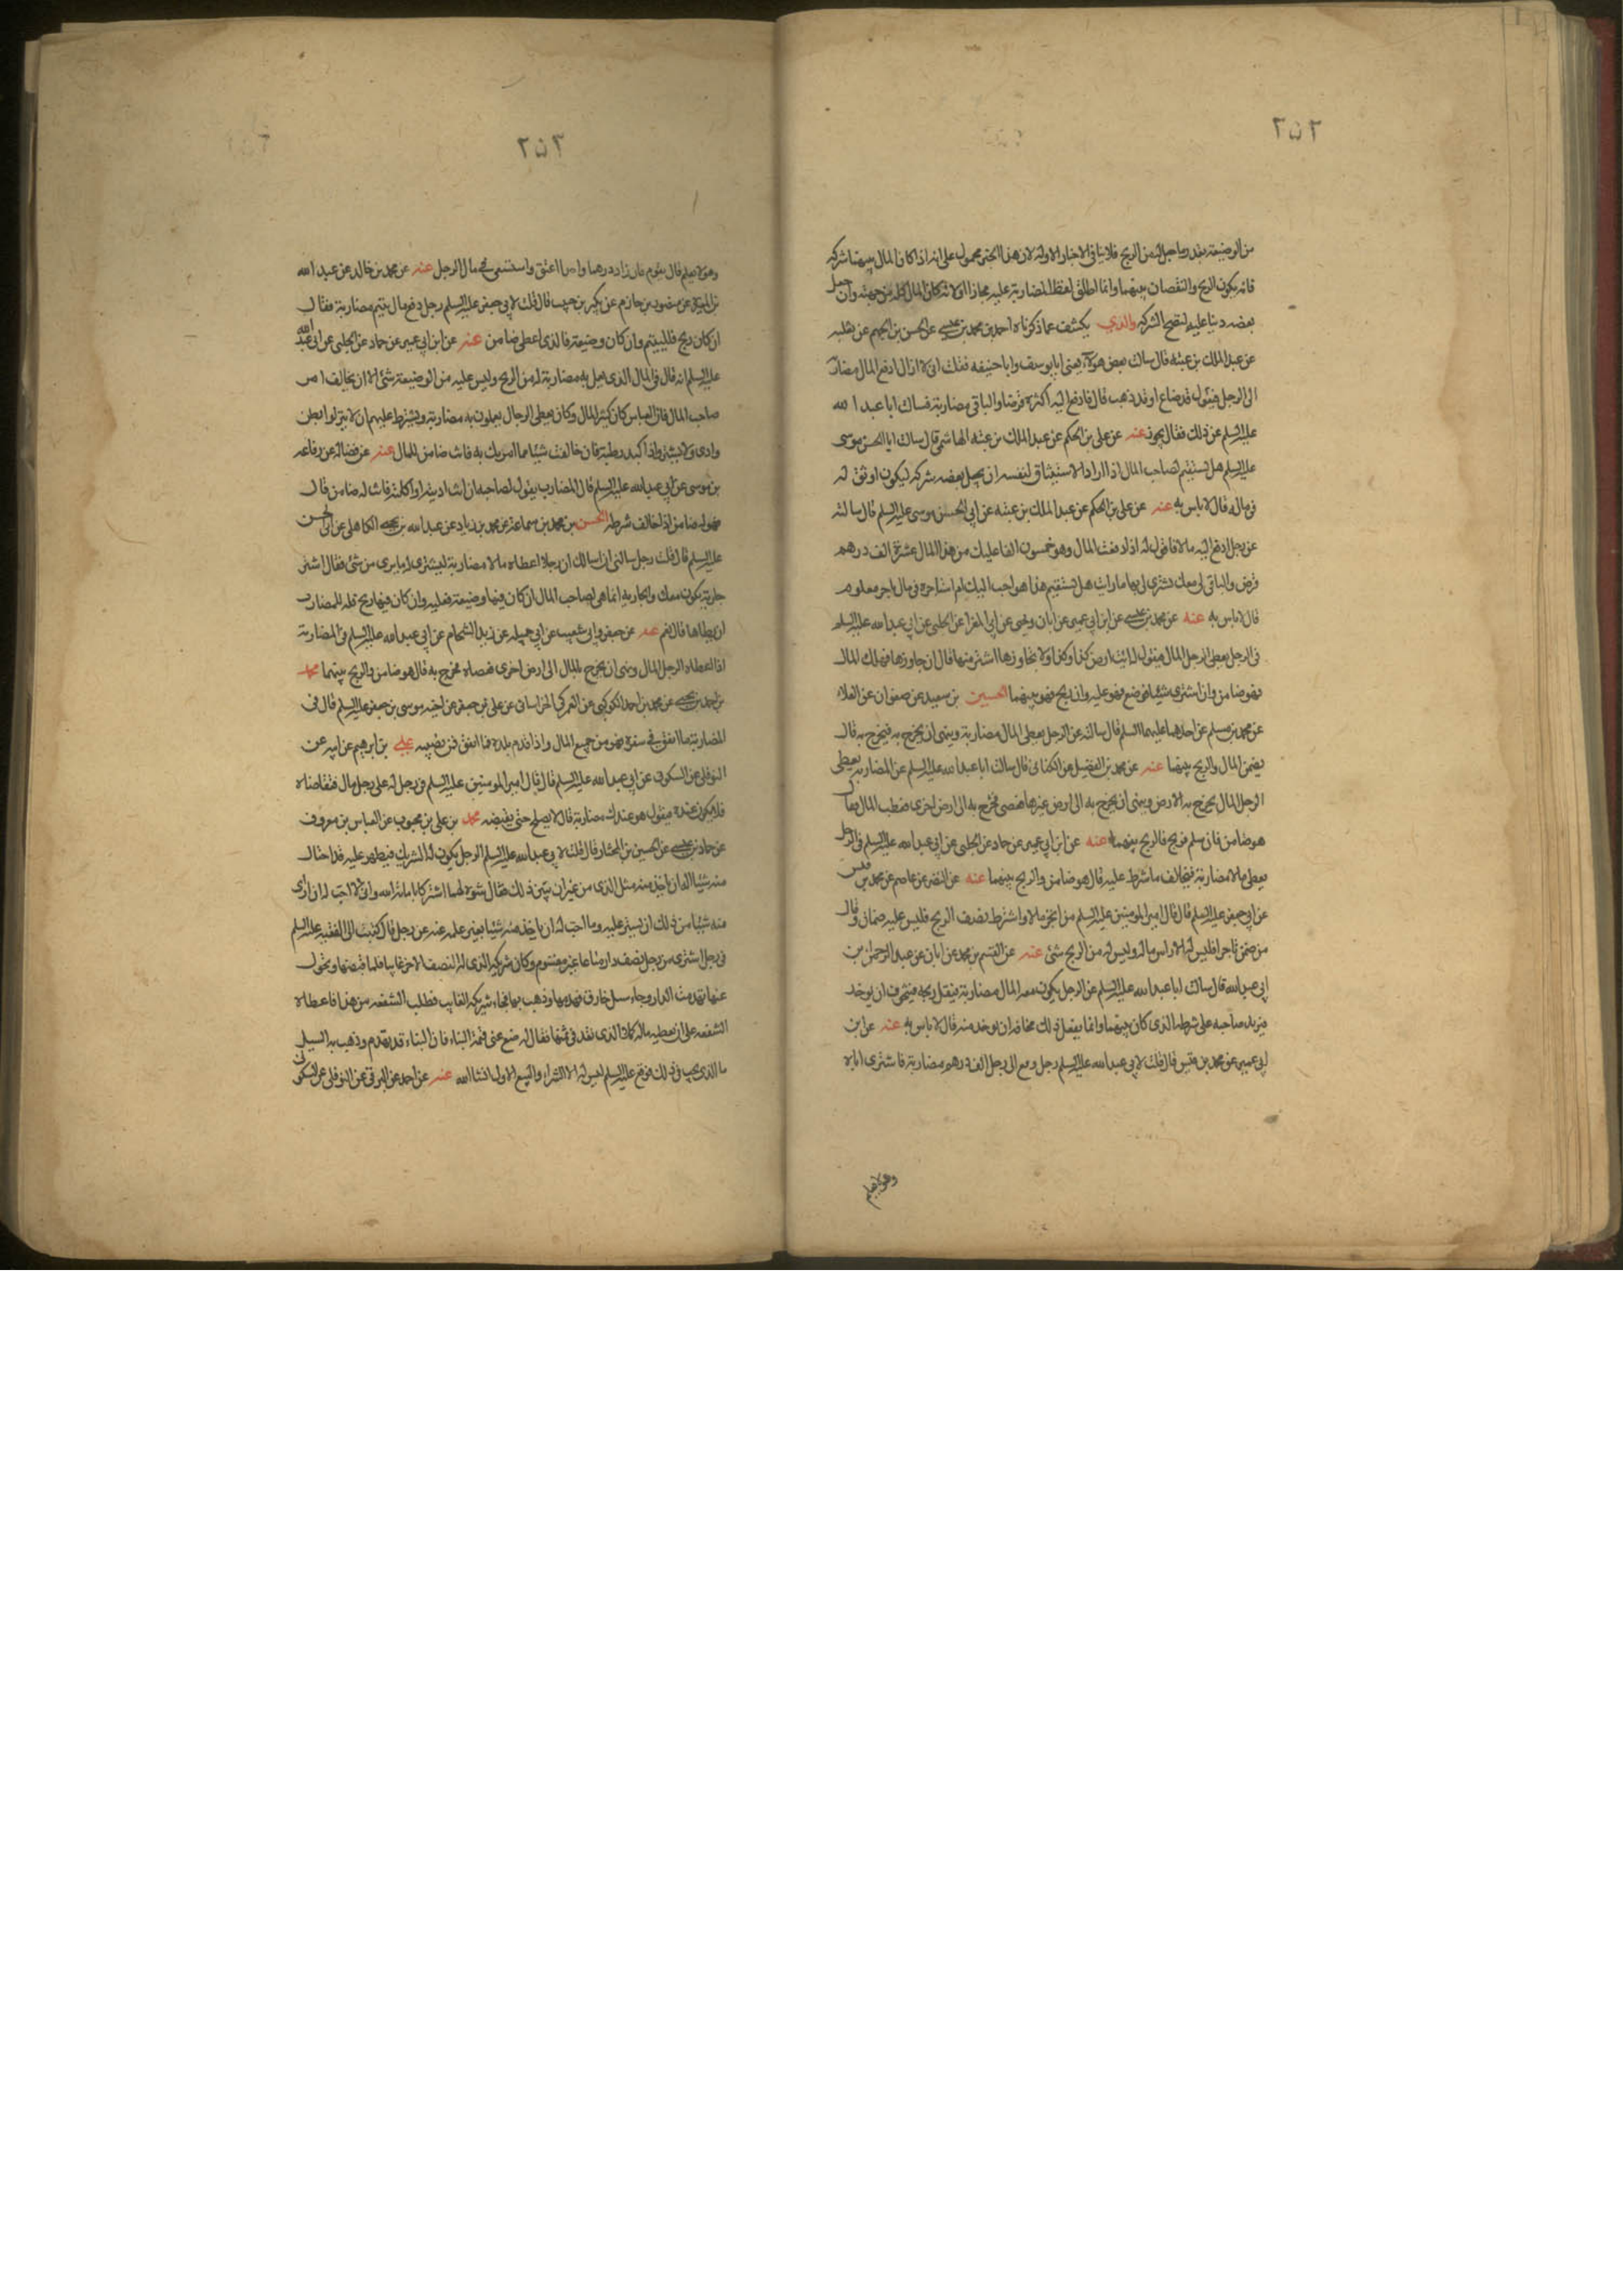 ٢٥٢
من الوضيعة بقدر ما جعل له من الربح فلا ينافي الاخبار الاولة لان هذا الخبر محمول على انه اذا كان المال بينهما شركة
فانه يكون الربح والنقصان بينهما وانما اطلق لفظ المضاربة عليه مجازا او لانه كان المال كله من جهته وان جعل
بعضه دينا عليه لتصح الشركة والذي يكشف عما ذكرناه احمد بن محمد بن عيسى عن الحسن بن الجهم عن ثعلبه
عن عبد الملك بن عتبه قال سالت بعض هولاء يعنى ابا يوسف وابا حنيفه فقلت انى لا ازال ادفع المال مضاربة
الى الرجل فيقول قد ضاع او قد ذهب قال فادفع اليه اكثره قرضا والباقى مضاربة فسالت ابا عبد الله
عليه السلم عن ذلك فقال يجوز عنه عن على بن الحكم عن عبد الملك بن عتبه الهاشمى قال سالت ابا الحسن موسى
عليه السلم هل يستقيم لصاحب المال اذا اراد الاستيثاق لنفسه ان يجعل بعضه شركة ليكون اوثق له
فى ماله قال لا باس به عنه عن على بن الحكم عن عبد الملك بن عتبه عن ابى الحسن موسى عليه السلم قال سالته
عن رجل ادفع اليه مالا فاقول له اذا دفعت المال وهو خمسون الفا عليك من هذا المال عشرة الف درهم
قرض والباقى لى معك تشترى لى بها ما رايت هل يستقيم هذا هو احب اليك ام استاجره فى مال باجر معلوم
قال لا باس به عنه عن محمد بن عيسى عن ابن ابى عمير عن ابان ويحيى عن ابى المغرا عن الحلبى عن ابى عبد الله عليه السلم
فى الرجل يعطى الرجل المال فيقول له ائت ارض كذا وكذا ولا تجاوزها اشتر منها قال ان جاوزها فهلك المال
فهو ضامن وان اشترى شيئا فوضع فهو عليه وان ربح فهو بينهما الحسين بن سعيد عن صفوان عن العلاء
عن محمد بن مسلم عن احدهما عليهما السلم قال سالته عن الرجل يعطى المال مضاربة وينهى ان يخرج به فيخرج به قال
يضمن المال والربح بينهما عنه عن محمد بن الفضيل عن الكنانى قال سالت ابا عبد الله عليه السلم عن المضاربة يعطى
الرجل المال يخرج به الى الارض وينهى ان يخرج به الى ارض غيرها فعصى فخرج به الى ارض اخرى فعطب المال فقال
هو ضامن فان سلم فربح فالربح بينهما عنه عن ابن ابى عمير عن حماد عن الحلبى عن ابى عبد الله عليه السلم فى الرجل
يعطى مالا مضاربة فيخالف ما شرط عليه قال هو ضامن والربح بينهما عنه عن النضر عن عاصم عن محمد بن قيس
عن ابى جعفر عليه السلم قال قال امير المومنين عليه السلم من اتجر مالا واشترط نصف الربح فليس عليه ضمان وقال
من ضمن تاجرا فليس له الا راس ماله وليس له من الربح شئ عنه عن القسم بن محمد عن ابان عن عبد الرحمن بن
ابى عبد الله قال سالت ابا عبد الله عليه السلم عن الرجل يكون معه المال مضاربة فيقل ربحه فيتخوف ان يوخذ
فيزيد صاحبه على شرطه الذى كان بينهما وانما يفعل ذلك مخافة ان يوخذ منه قال لا باس به عنه عن ابن
ابى عمير عن محمد بن قيس قال قلت لابى عبد الله عليه السلم رجل دفع الى رجل الف درهم مضاربة فاشترى اباه
وهو لا يعلم
٢٥٣
وهو لا يعلم قال يقوم فان زاد درهما واحدا اعتق واستسعى فى مال الرجل عنه عن محمد بن خالد عن عبد الله
بن المغيرة عن منصور بن حازم عن بكر بن حبيب قال قلت لابى جعفر عليه السلم رجل دفع مال يتيم مضاربة فقال
ان كان ربح فلليتيم وان كان وضيعة فالذى اعطى ضامن عنه عن ابن ابى عمير عن حماد عن الحلبى عن ابى عبد الله
عليه السلم انه قال فى المال الذى يعمل به مضاربة له من الربح وليس عليه من الوضيعة شئ الا ان يخالف امر
صاحب المال فان العباس كان كثير المال وكان يعطى الرجال يعملون به مضاربة ويشترط عليهم ان لا ينزلوا بطن
وادى ولا يشتروا ذا كبد رطبة فان خالفت شيئا مما امرتك به فانت ضامن للمال عنه عن فضالة عن رفاعه
بن موسى عن ابى عبد الله عليه السلم قال المضارب يقول لصاحبه ان انت ادنته او اكلته فانت له ضامن قال
فهو له ضامن اذا خالف شرطه الحسن بن محمد بن سماعة عن محمد بن زياد عن عبد الله بن يحيى الكاهلى عن ابى الحسن
عليه السلم قال قلت رجل سالنى ان اسالك ان رجلا اعطاه مالا مضاربة ليشترى له ما يرى من شئ فقال اشتر
جارية تكون معك والجارية انما هى لصاحب المال ان كان فيها وضيعة فعليه وان كان فيها ربح فله للمضارب
ان يطاها قال نعم عنه عن جعفر وابى شعيب عن ابى جميله عن زيد الشحام عن ابى عبد الله عليه السلم فى المضاربة
اذا اعطاه الرجل المال ونهى ان يخرج بالمال الى ارض اخرى فعصاه فخرج به قال هو ضامن والربح بينهما محمد
بن احمد بن يحيى عن محمد بن احمد الكوكبى عن العمركى الخراسانى عن على بن جعفر عن اخيه موسى بن جعفر عليه السلم قال فى
المضاربة ما انفق فى سفره فهو من جميع المال واذا قدم بلده فما انفق فمن نصيبه على بن ابرهيم عن ابيه عن
النوفلى عن السكونى عن ابى عبد الله عليه السلم قال قال امير المومنين عليه السلم فى رجل له على رجل مال فتقاضاه
فلا يكون عنده فيقول هو عندك مضاربة قال لا يصلح حتى يقبضه محمد بن على بن محبوب عن العباس بن معروف
عن حماد بن عيسى عن الحسين بن المختار قال قلت لابى عبد الله عليه السلم الرجل يكون له الشريك فيظهر عليه قد اختان
منه شيئا اله ان ياخذ منه مثل الذى من غير ان يبين ذلك فقال شوه لهما اشتركا بامانة الله وانى لا احب له ان راى
منه شيئا من ذلك ان يستر عليه وما احب له ان ياخذ منه شيئا بغير علمه عنه عن رجل قال كتبت الى الفقيه عليه السلم
فى رجل اشترى من رجل نصف دار مشاعا غير مقسوم وكان شريكه الذى له النصف الاخر غايبا فلما قبضها وتحول
عنها تهدمت الدار وجاء سيل خارق فهدمها وذهب بها فجاء شريكه الغايب فطلب الشفعه من هذا فاعطاه
الشفعه على ان يعطيه ماله كملا الذى نقد فى ثمنها فقال له ضع عنى قيمة البناء فان البناء قد تهدم وذهب به السيل
ما الذى يجب فى ذلك فوقع عليه السلم ليس له الا الشراء والبيع الاول انشا الله عنه عن احمد عن البرقى عن النوفلى عن السكونى